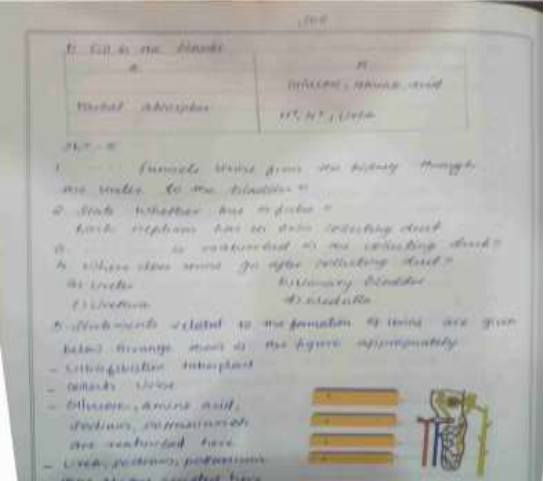 1) Fill in the blanks
A
B
Glucose, amino acid
Partial absorption
H+, K+, Urea
1. funnels urine from the kidney through
the ureter to the bladder
2. State whether true or false
Each nephron has its own collecting duct
3. is reabsorbed in the collecting duct?
4. Where does urine go after collecting duct?
a) Ureter b) Urinary bladder
c) Urethra d) Medulla
5. Statements related to the formation of urine are given
below. Arrange them in the figure appropriately
- Ultrafiltration takes place
- Collects urine
- Glucose, amino acid,
sodium, potassium
are reabsorbed here
- Urea, sodium, potassium